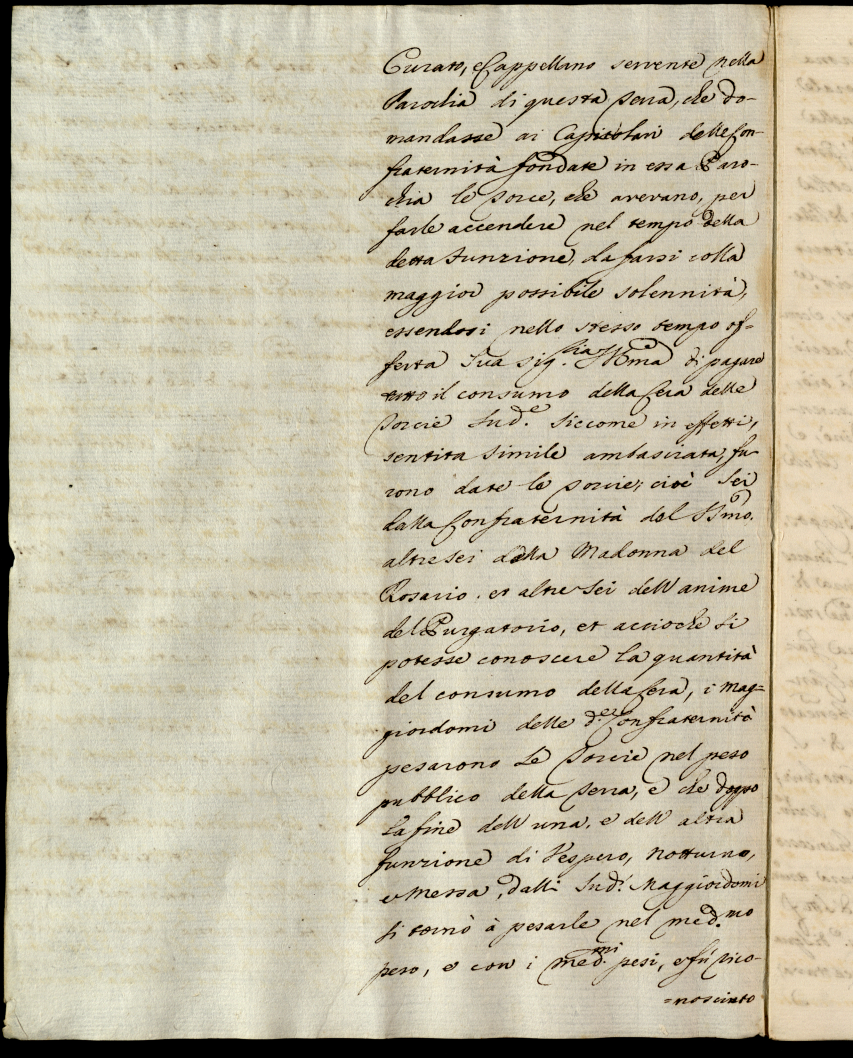 Curato, e Cappellano servente nella
Parochia di questa Terra, che do-
mandasse ai Capitolari delle Con-
fraternità fondate in essa Paro-
chia le Torce, che avevano, per
farle accendere nel tempo della
detta Funzione, da farsi colla
maggior possibile solennità,
essendosi nello stesso tempo of-
ferta Sua Sig.ria Ill.ma di pagare
tutto il consumo della Cera delle
Torcie Sud.e Siccome in effetti,
sentita simile ambasciata, fu-
rono date le Torcie, cioè Sei
dalla Confraternità del SSmo.
altre sei della Madonna del
Rosario. et altre Sei dell'anime
del Purgatorio, et acciochè si
potesse conoscere la quantità
del consumo della Cera, i Mag-
giordomi delle d.e Confraternità
pesarono Le Torcie nel peso
pubblico della Terra, e che doppo
La fine dell'una, e dell'altra
funzione di Vespero, Notturno,
e Messa, dalli Sud.i Maggiordomi
si tornò à pesarle nel med.mo
peso, e con i med.mi pesi, e fù rico-
=nosciuto